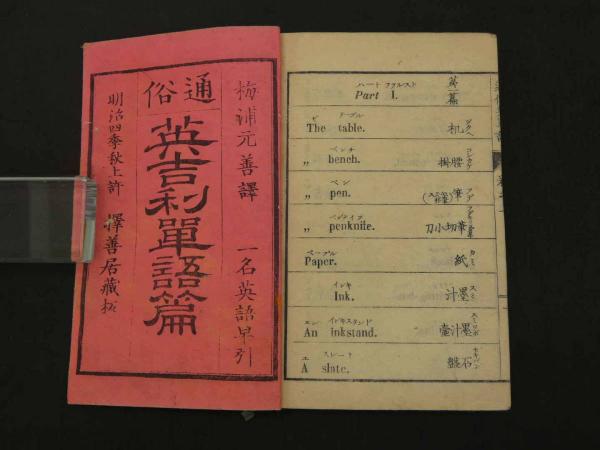 梅浦元善譯
一名英語早引
通俗
英吉利單語篇
明治四季秋上許
擇善居藏板
パート ファルスト
Part I.
第一篇
ゼ テーブル
The table.
机
ツクヱ
ベンチ
„ bench.
腰掛
コシカケ
ペン
„ pen.
筆
フデ
ペンナイフ
„ penknife.
筆切小刀
ペープル
Paper.
紙
カミ
インキ
Ink.
墨汁
スミ
エン インキスタンド
An inkstand.
墨汁壷
エ スレート
A slate.
石盤
セキバン